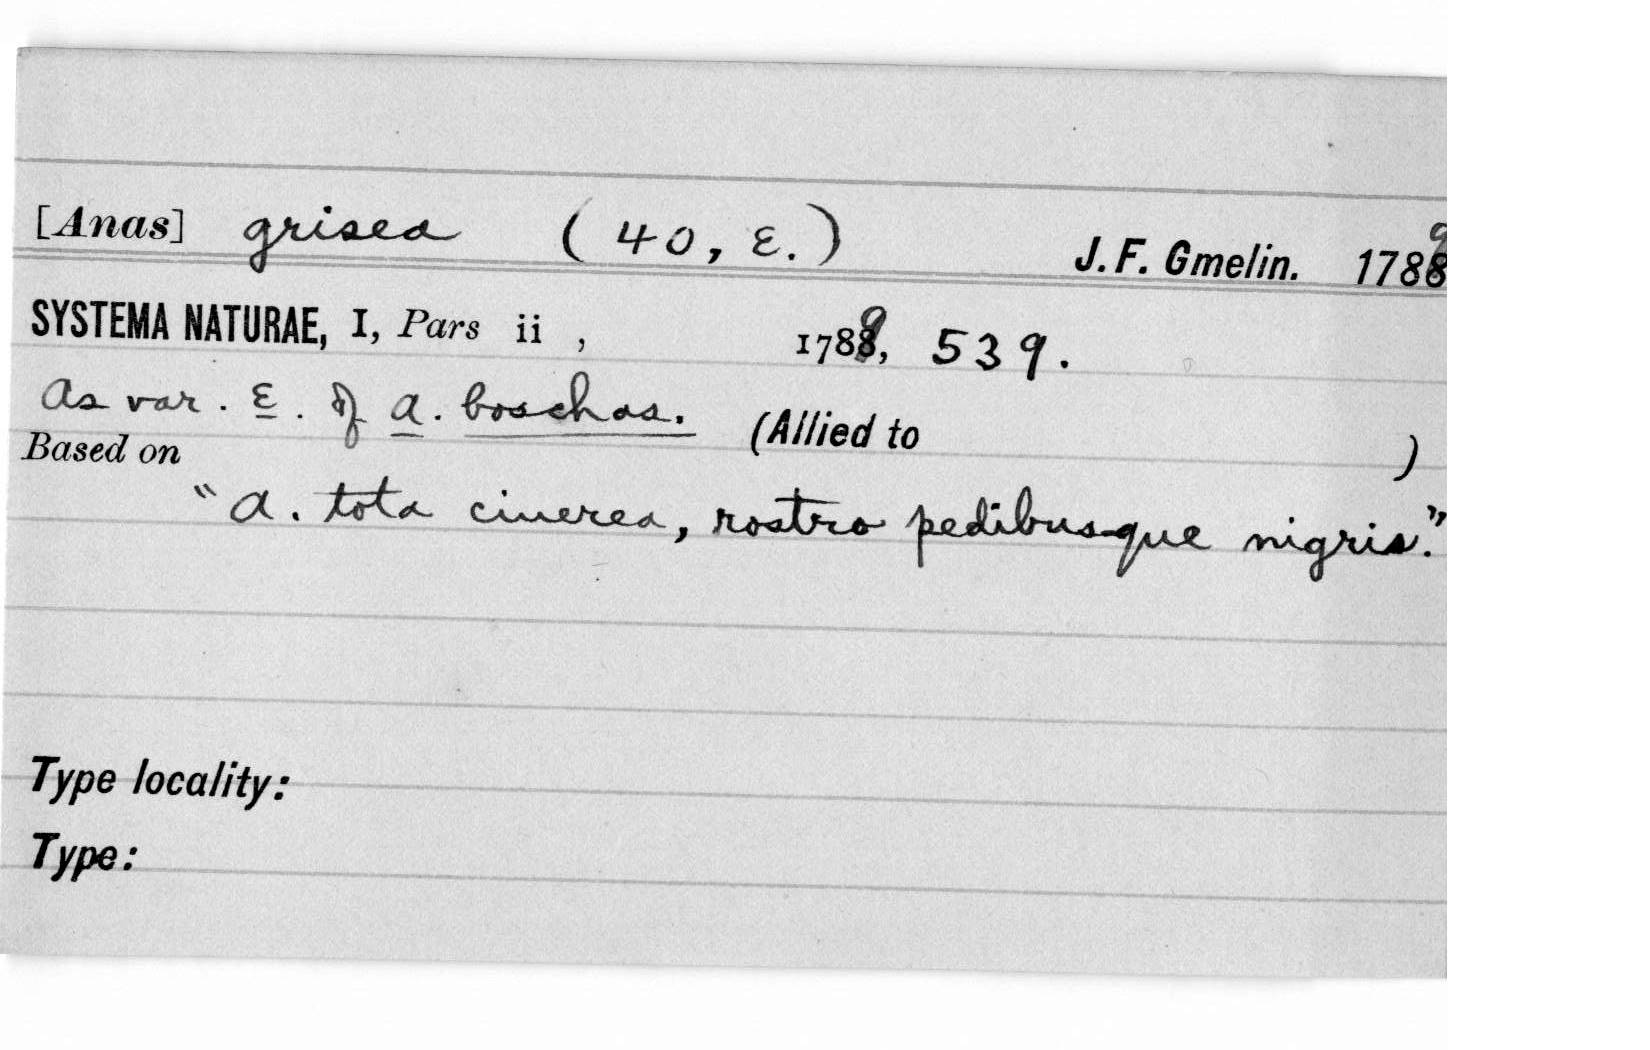 [Anas] grisea (40, ε.) J. F. Gmelin. 1789
SYSTEMA NATURAE, I, Pars ii, 1789, 539.
As var. ε. of A. boschas. (Allied to )
Based on
"A. tota cinerea, rostro pedibusque nigris."
Type locality:
Type: